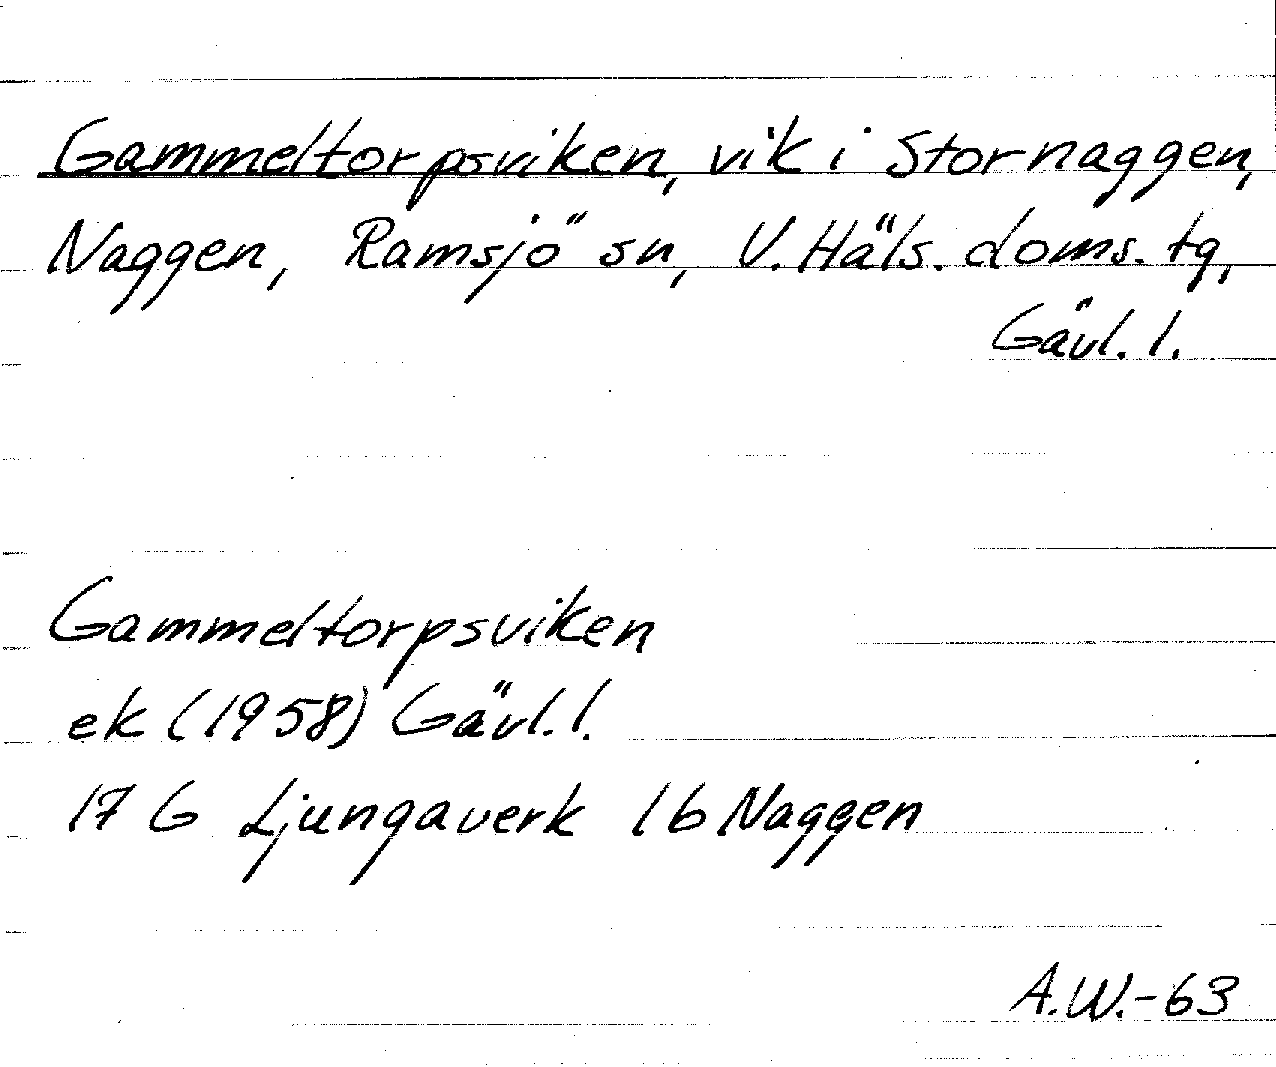 Gammeltorpsviken, vik i Stornaggen,
Naggen, Ramsjö sn, V. Häls. doms. tg,
Gävl. l.
Gammeltorpsviken
ek (1958) Gävl. l.
17 G Ljungaverk 1b Naggen
A.W.-63